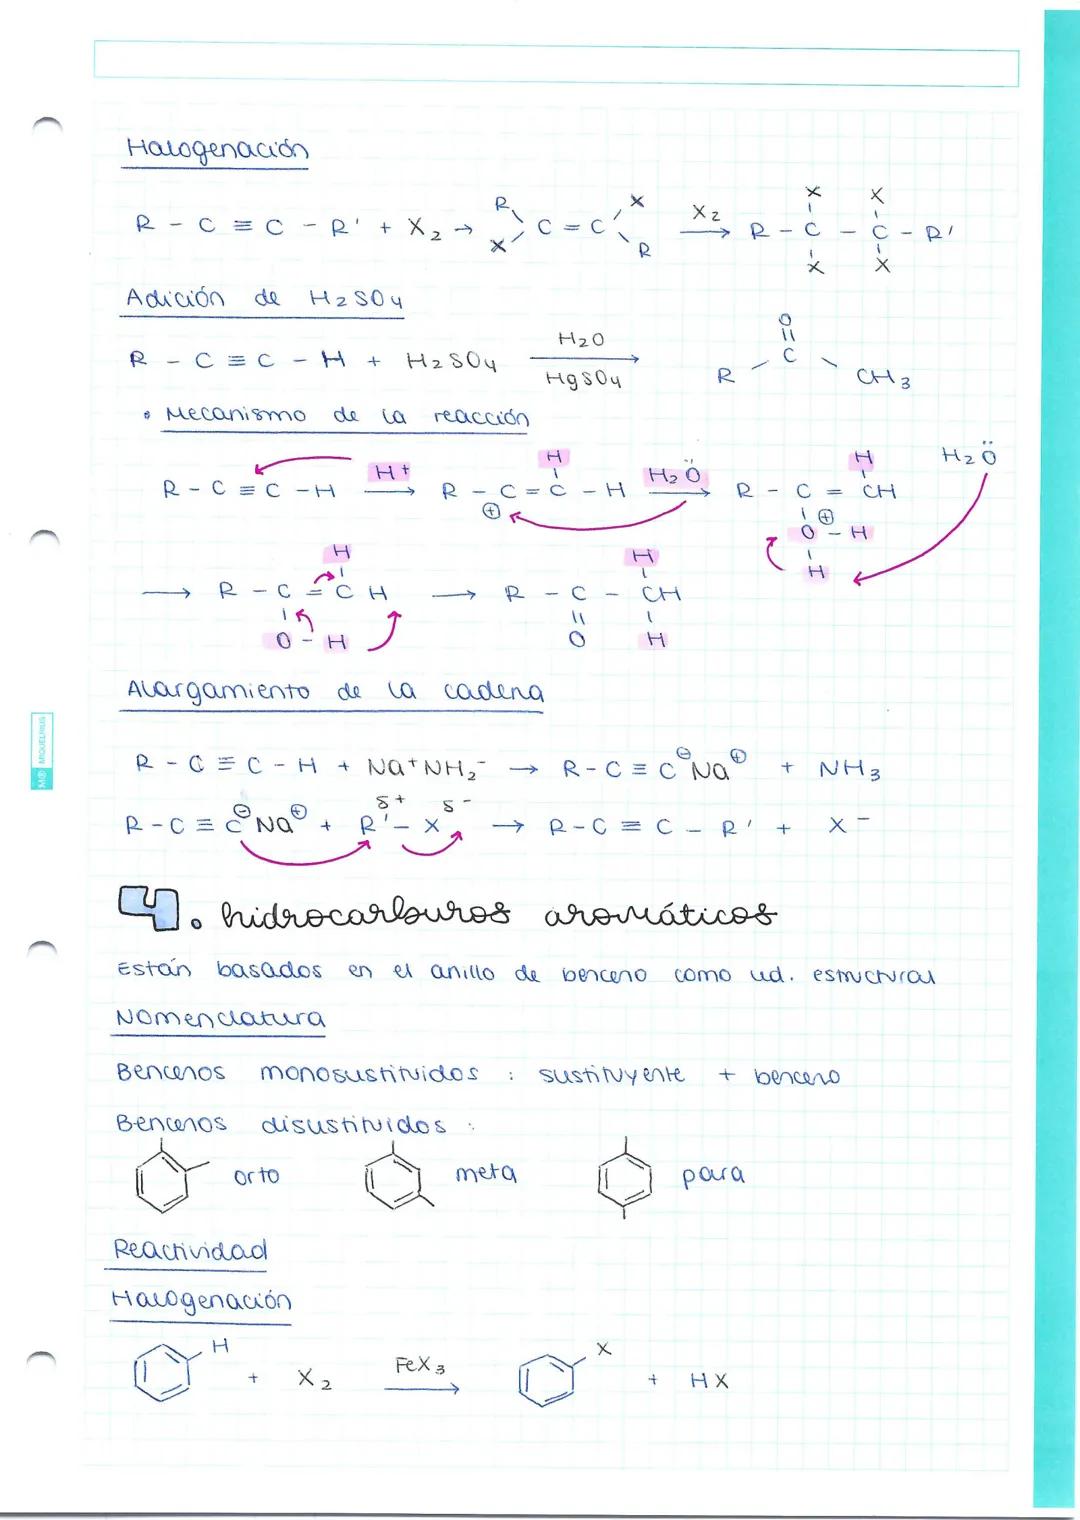 Halogenación
R - C ≡ C - R' + X₂ → R X C = C X R X₂ → R - C X X - C X X - R'
Adición de H₂SO₄
R - C ≡ C - H + H₂SO₄ H₂O HgSO₄ → R - C = O - CH₃
• Mecanismo de la reacción
R - C ≡ C - H H⁺ → R - C ⊕ = C H - H H₂Ö → R - C = CH H O ⊕ - H H H₂Ö
→ R - C = C H H O - H → R - C - CH H O H
Alargamiento de la cadena
R - C ≡ C - H + Na⁺NH₂⁻ → R - C ≡ C⊖ Na⊕ + NH₃
R - C ≡ C⊖ Na⊕ + R' δ+ - X δ- → R - C ≡ C - R' + X⁻
4. hidrocarburos aromáticos
Están basados en el anillo de benceno como ud. estructural
Nomenclatura
Bencenos monosustituidos : sustituyente + benceno
Bencenos disustituidos :
orto meta para
Reactividad
Halogenación
H + X₂ FeX₃ → X + HX
MIQUELRIUS